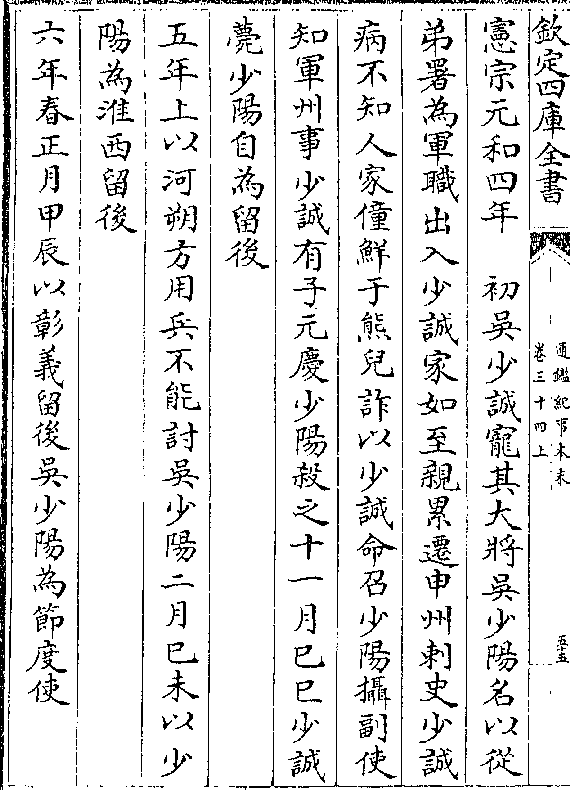 欽定四庫全書
通鑑紀事本末
卷三十四上
五十五
憲宗元和四年　初吳少誠寵其大將吳少陽名以從
弟署為軍職出入少誠家如至親累遷申州刺史少誠
病不知人家僮鮮于熊兒詐以少誠命召少陽攝副使
知軍州事少誠有子元慶少陽殺之十一月已巳少誠
薨少陽自為留後
五年上以河朔方用兵不能討吳少陽二月已未以少
陽為淮西留後
六年春正月甲辰以彰義留後吳少陽為節度使